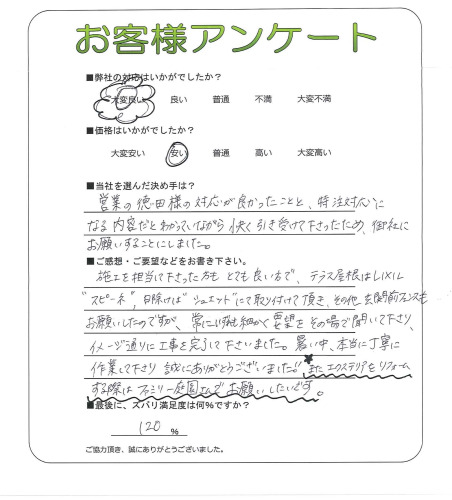 お客様アンケート
■弊社の対応はいかがでしたか?
大変良い 良い 普通 不満 大変不満
■価格はいかがでしたか?
大変安い 安い 普通 高い 大変高い
■当社を選んだ決め手は?
営業の徳田様の対応が良かったことと、特注対応に
なる内容だとわかっていながら快く引き受けて下さったため、御社に
お願いすることにしました。
■ご感想・ご要望などをお書き下さい。
施工を担当して下さった方も とても良い方で、テラス屋根はLIXIL
"スピーネ"、日除けは"シュエット"にて取り付けて頂き、その他、玄関前フェンスも
お願いしたのですが、常に 細かく要望をその場で聞いて下さり、
イメージ通りに工事を完了して下さいました。暑い中、本当に丁寧に
作業して下さり 誠にありがとうございました。★またエクステリアをリフォーム
する際はファミリー庭園さんでお願いしたいです。
■最後に、ズバリ満足度は何%ですか?
120 %
ご協力頂き、誠にありがとうございました。